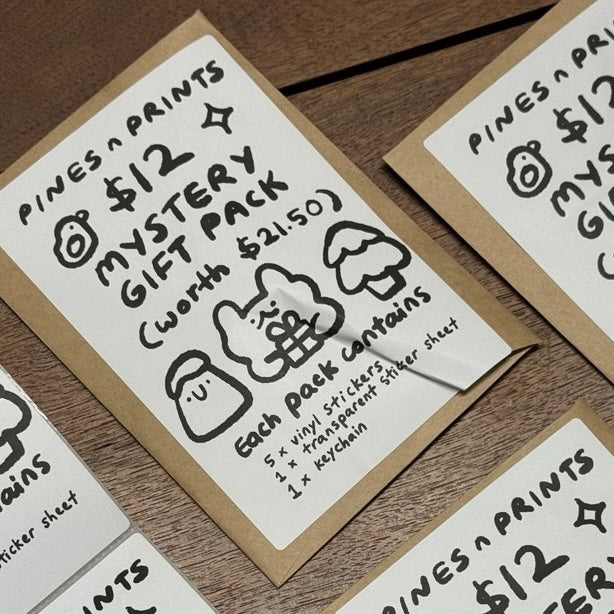 PINES n PRINTS
$12
MYSTERY
GIFT PACK
(worth $21.50)
Each pack contains
5 x vinyl stickers
1 x transparent sticker sheet
1 x keychain
PINES n PRI
$12
MYS
G
(
ains
ticker sheet
NTS
PINES n PRINTS
$12
TER